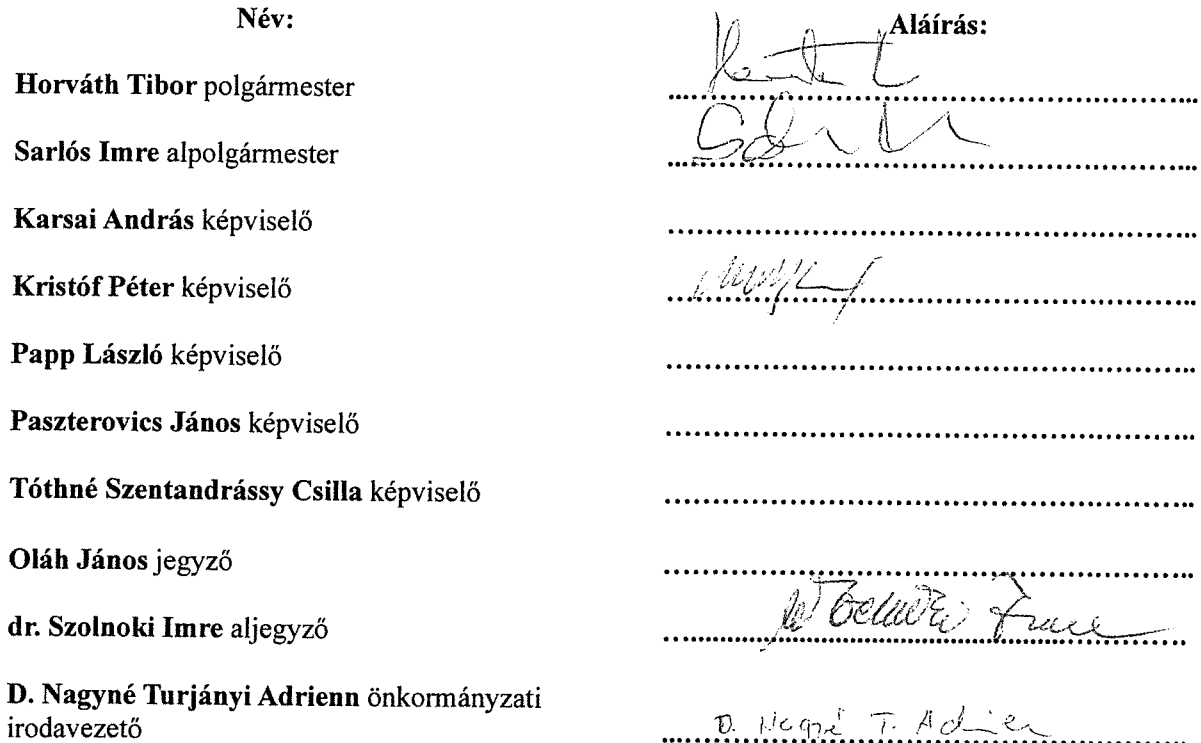 Név: Aláírás:
Horváth Tibor polgármester
Sarlós Imre alpolgármester
Karsai András képviselő
Kristóf Péter képviselő
Papp László képviselő
Paszterovics János képviselő
Tóthné Szentandrássy Csilla képviselő
Oláh János jegyző
dr. Szolnoki Imre aljegyző
D. Nagyné Turjányi Adrienn önkormányzati
irodavezető D. Nagyné T. Adrien